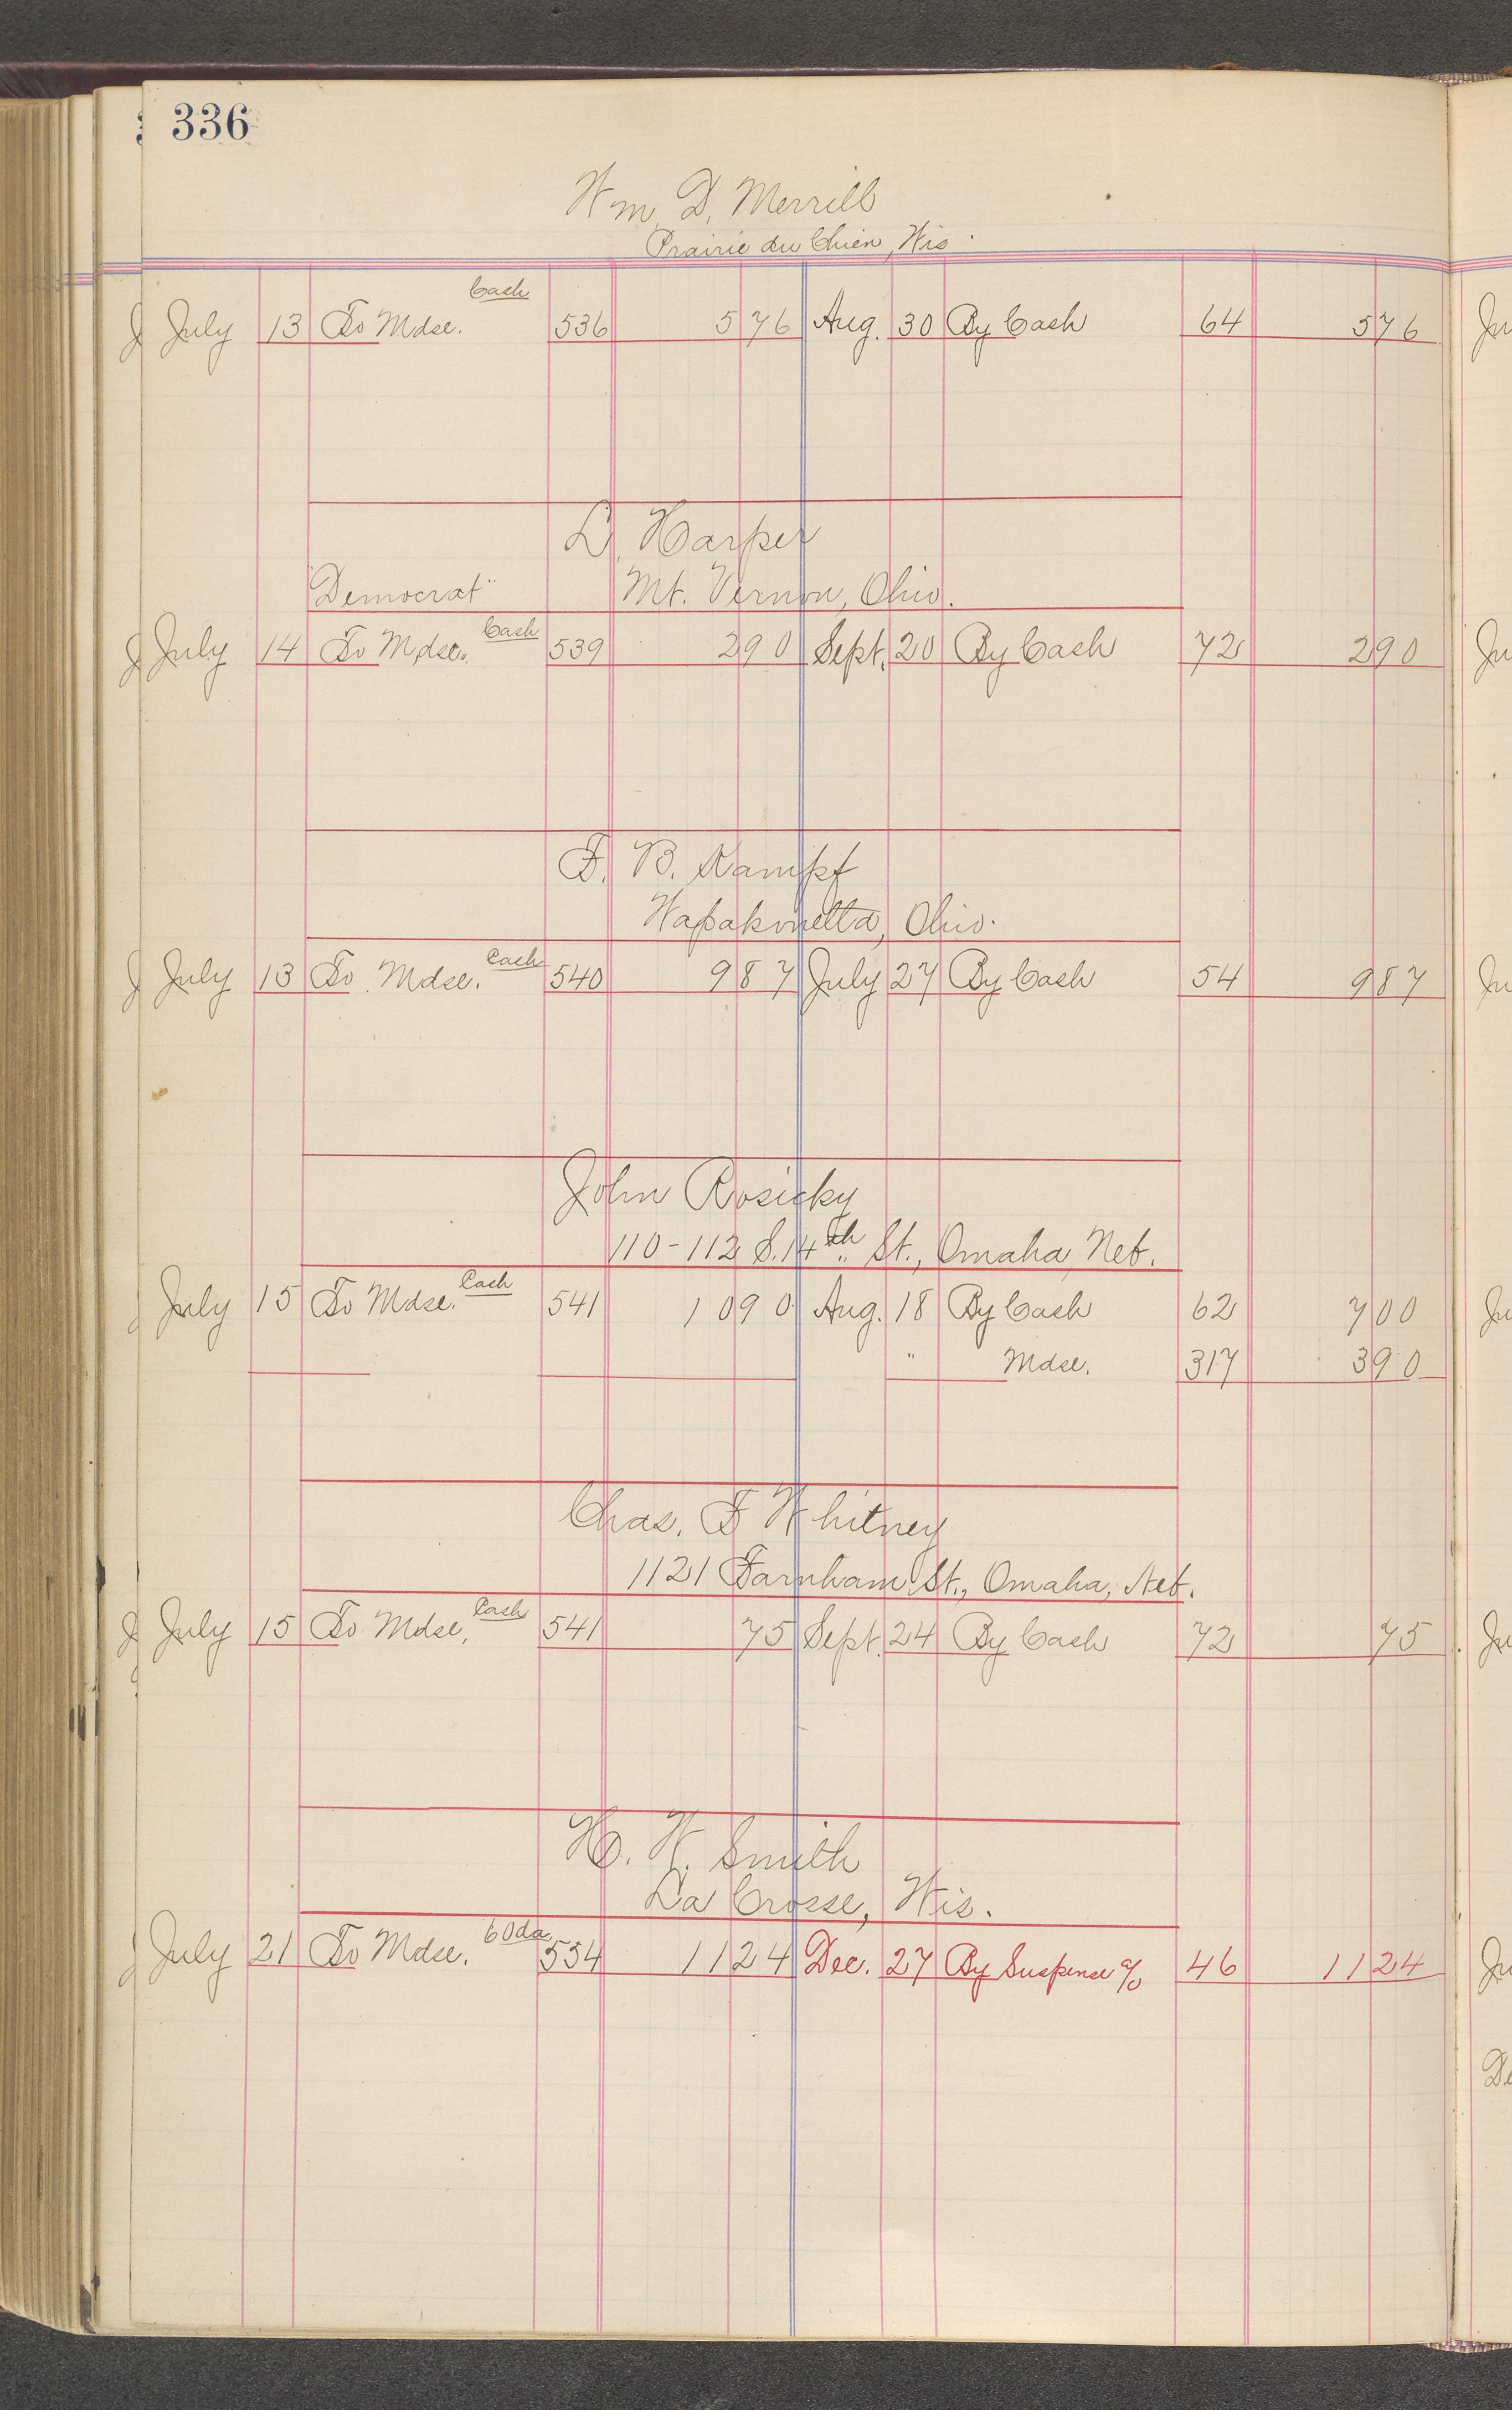 336
Wm. D. Merrill
Prairie du Chien, Wis.
Cash
July 13 To Mdse. 536 5 76 Aug. 30 By Cash 64 5 76
L. Harper
"Democrat" Mt. Vernon, Ohio.
July 14 To Mdse. Cash 539 2 90 Sept. 20 By Cash 72 2 90
F. B. Kampf
Wapakonetta, Ohio.
July 13 To Mdse. Cash 540 9 87 July 27 By Cash 54 9 87
John Rosicky
110-112 S. 14th St., Omaha, Neb.
July 15 To Mdse. Cash 541 10 90 Aug. 18 By Cash 62 7 00
" Mdse. 317 3 90
Chas. F Whitney
1121 Farnham St., Omaha, Neb.
July 15 To Mdse. Cash 541 75 Sept. 24 By Cash 72 75
H. W. Smith
La Crosse, Wis.
July 21 To Mdse. 60 da. 554 11 24 Dec. 27 By Suspense a/c 46 11 24